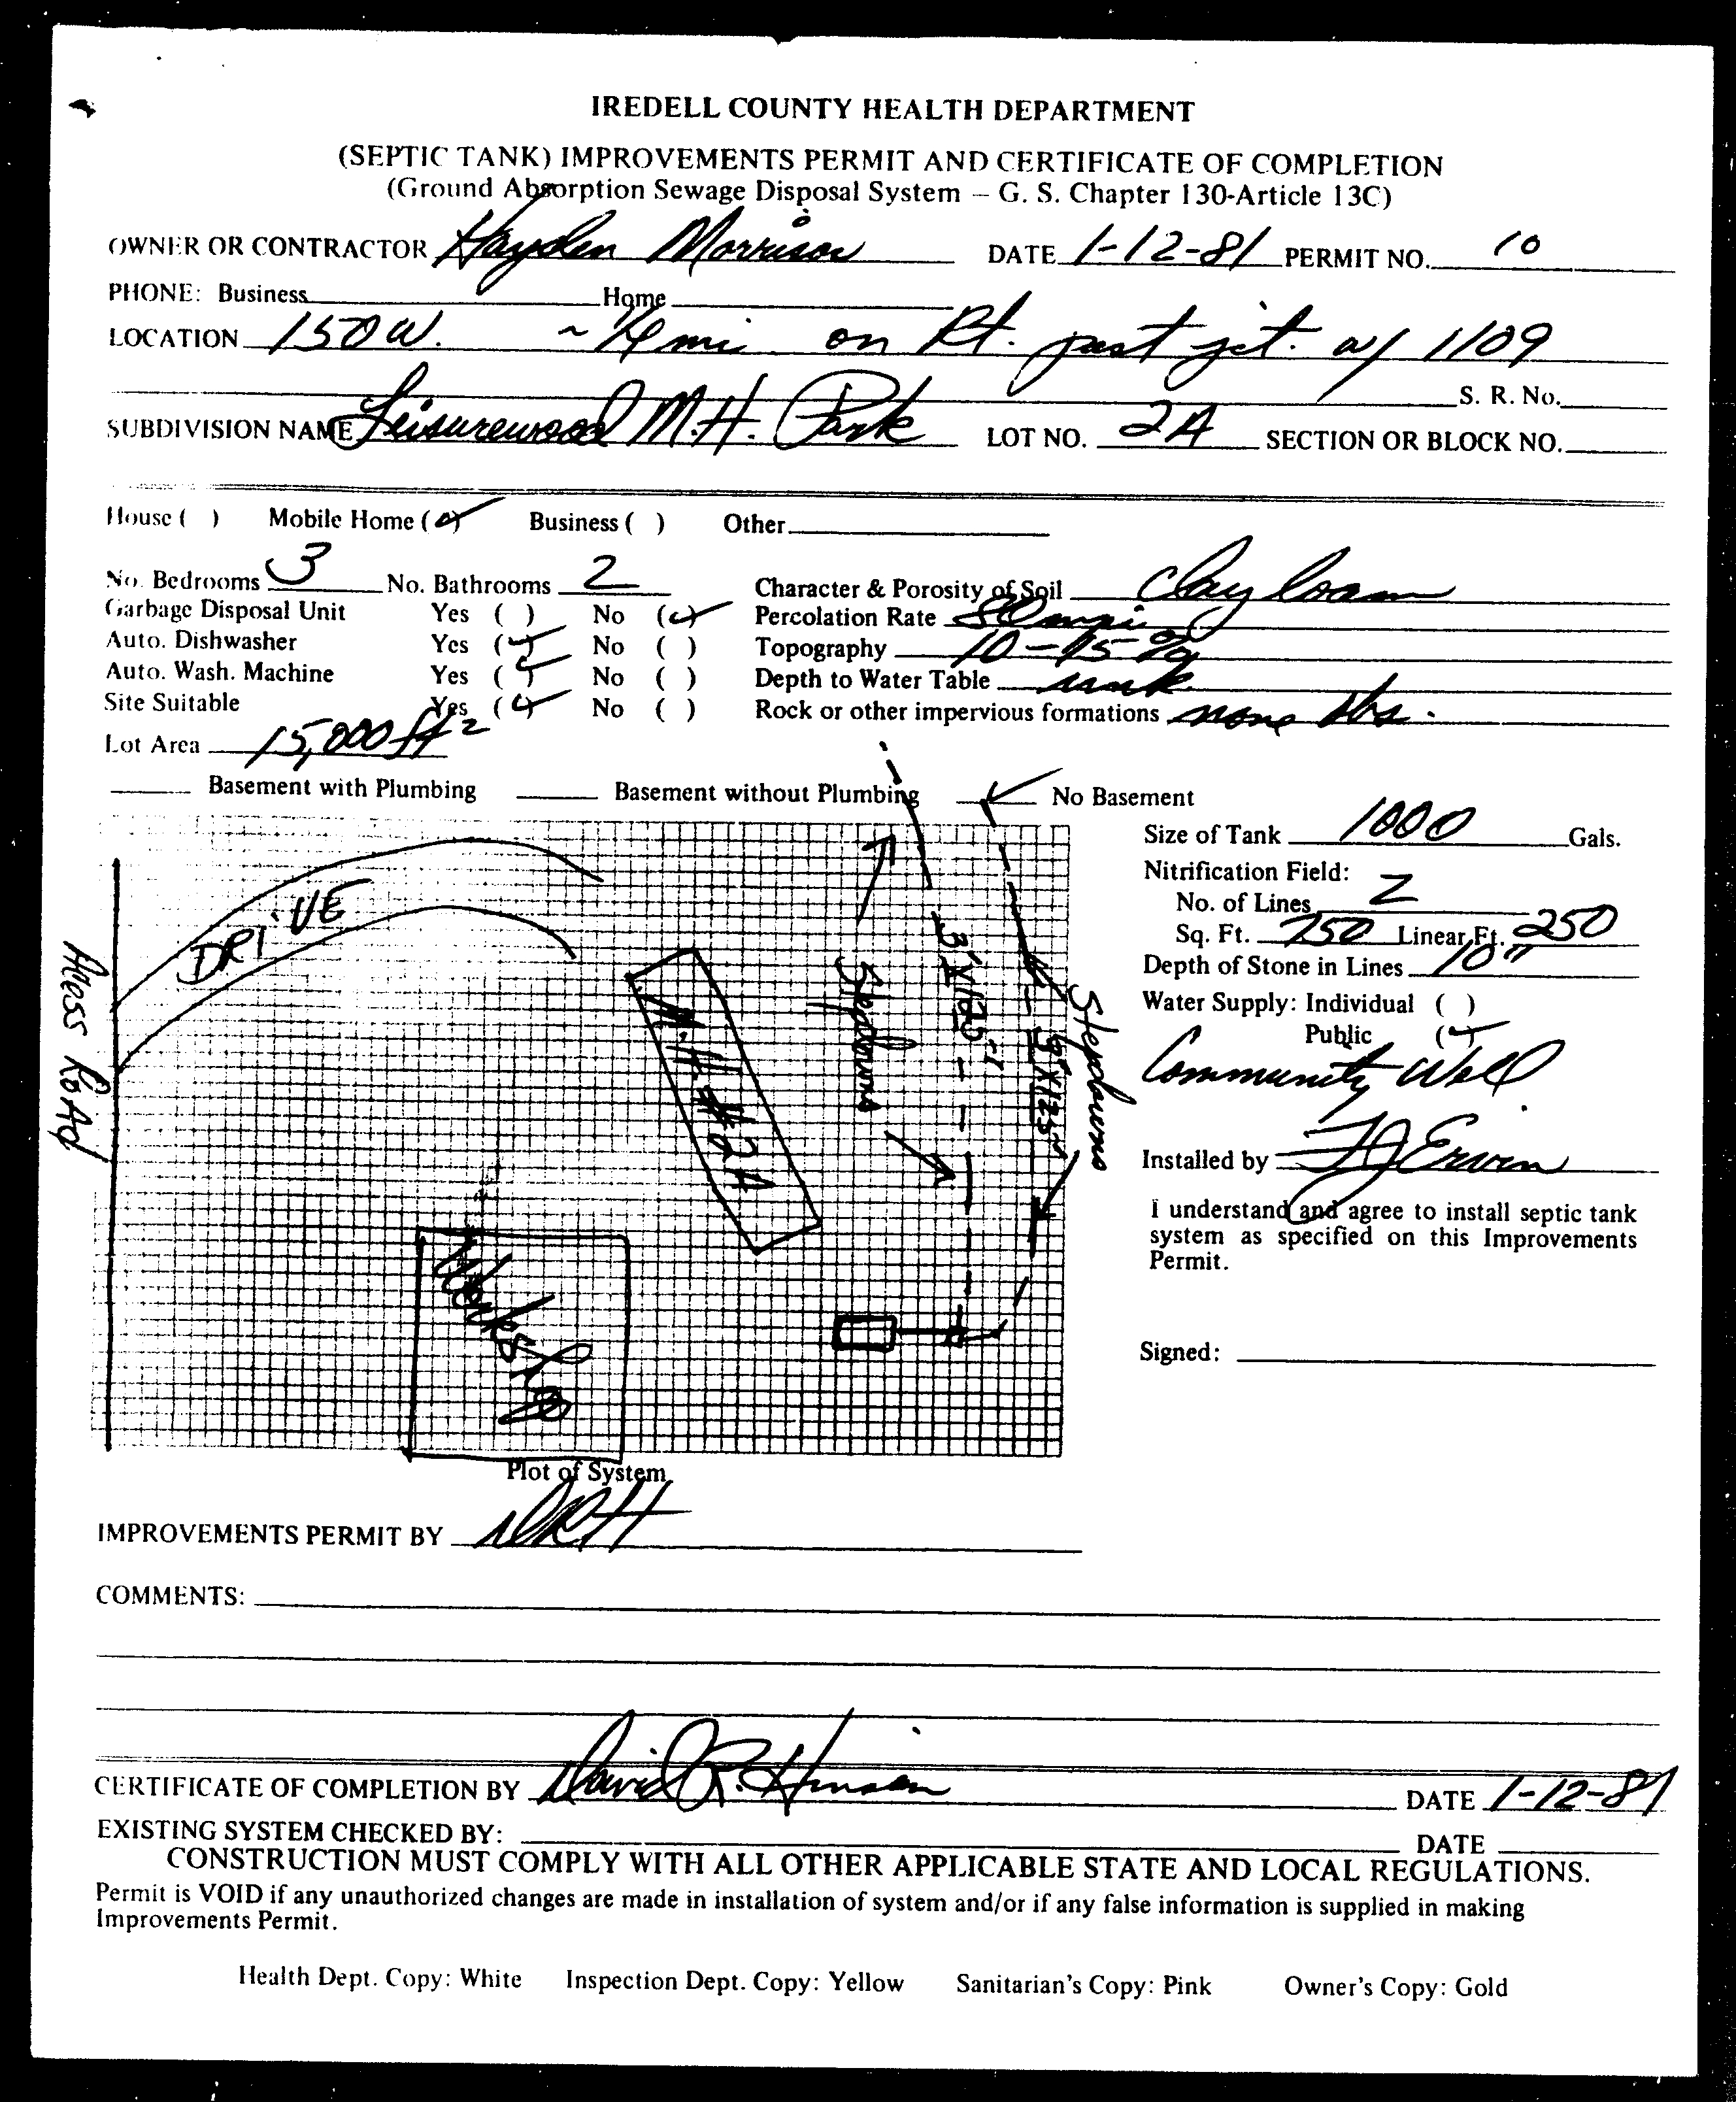 IREDELL COUNTY HEALTH DEPARTMENT
(SEPTIC TANK) IMPROVEMENTS PERMIT AND CERTIFICATE OF COMPLETION
(Ground Absorption Sewage Disposal System – G. S. Chapter 130-Article 13C)
OWNER OR CONTRACTOR Hayden Morrison DATE 1-12-81 PERMIT NO. 10
PHONE: Business Home
LOCATION 150 W. ~ 1/4 mi on Rt. past jct. w/ 1109
S. R. No.
SUBDIVISION NAME Leisurewood M.H. Park LOT NO. 2A SECTION OR BLOCK NO.
House ( ) Mobile Home (✓) Business ( ) Other
No. Bedrooms 3 No. Bathrooms 2 Character & Porosity of Soil Clay loam
Garbage Disposal Unit Yes ( ) No (✓) Percolation Rate 80 mpi
Auto. Dishwasher Yes (✓) No ( ) Topography 10-15%
Auto. Wash. Machine Yes (✓) No ( ) Depth to Water Table unk.
Site Suitable Yes (✓) No ( ) Rock or other impervious formations none obs.
Lot Area 15,000 ft2
Basement with Plumbing Basement without Plumbing ✓ No Basement
Size of Tank 1000 Gals.
Nitrification Field:
No. of Lines 2
Sq. Ft. 750 Linear Ft. 250
Depth of Stone in Lines 10"
Water Supply: Individual ( )
Public (✓)
Community Well
Installed by FJ Ervin
I understand and agree to install septic tank
system as specified on this Improvements
Permit.
Signed:
DRIVE
Access Road
M.H. #2A
Stepdowns
3'X125'
3'X125'
Stepdowns
Workshop
Plot of System
IMPROVEMENTS PERMIT BY DRH
COMMENTS:
CERTIFICATE OF COMPLETION BY David R. Hinson DATE 1-12-81
EXISTING SYSTEM CHECKED BY: DATE
CONSTRUCTION MUST COMPLY WITH ALL OTHER APPLICABLE STATE AND LOCAL REGULATIONS.
Permit is VOID if any unauthorized changes are made in installation of system and/or if any false information is supplied in making
Improvements Permit.
Health Dept. Copy: White Inspection Dept. Copy: Yellow Sanitarian's Copy: Pink Owner's Copy: Gold